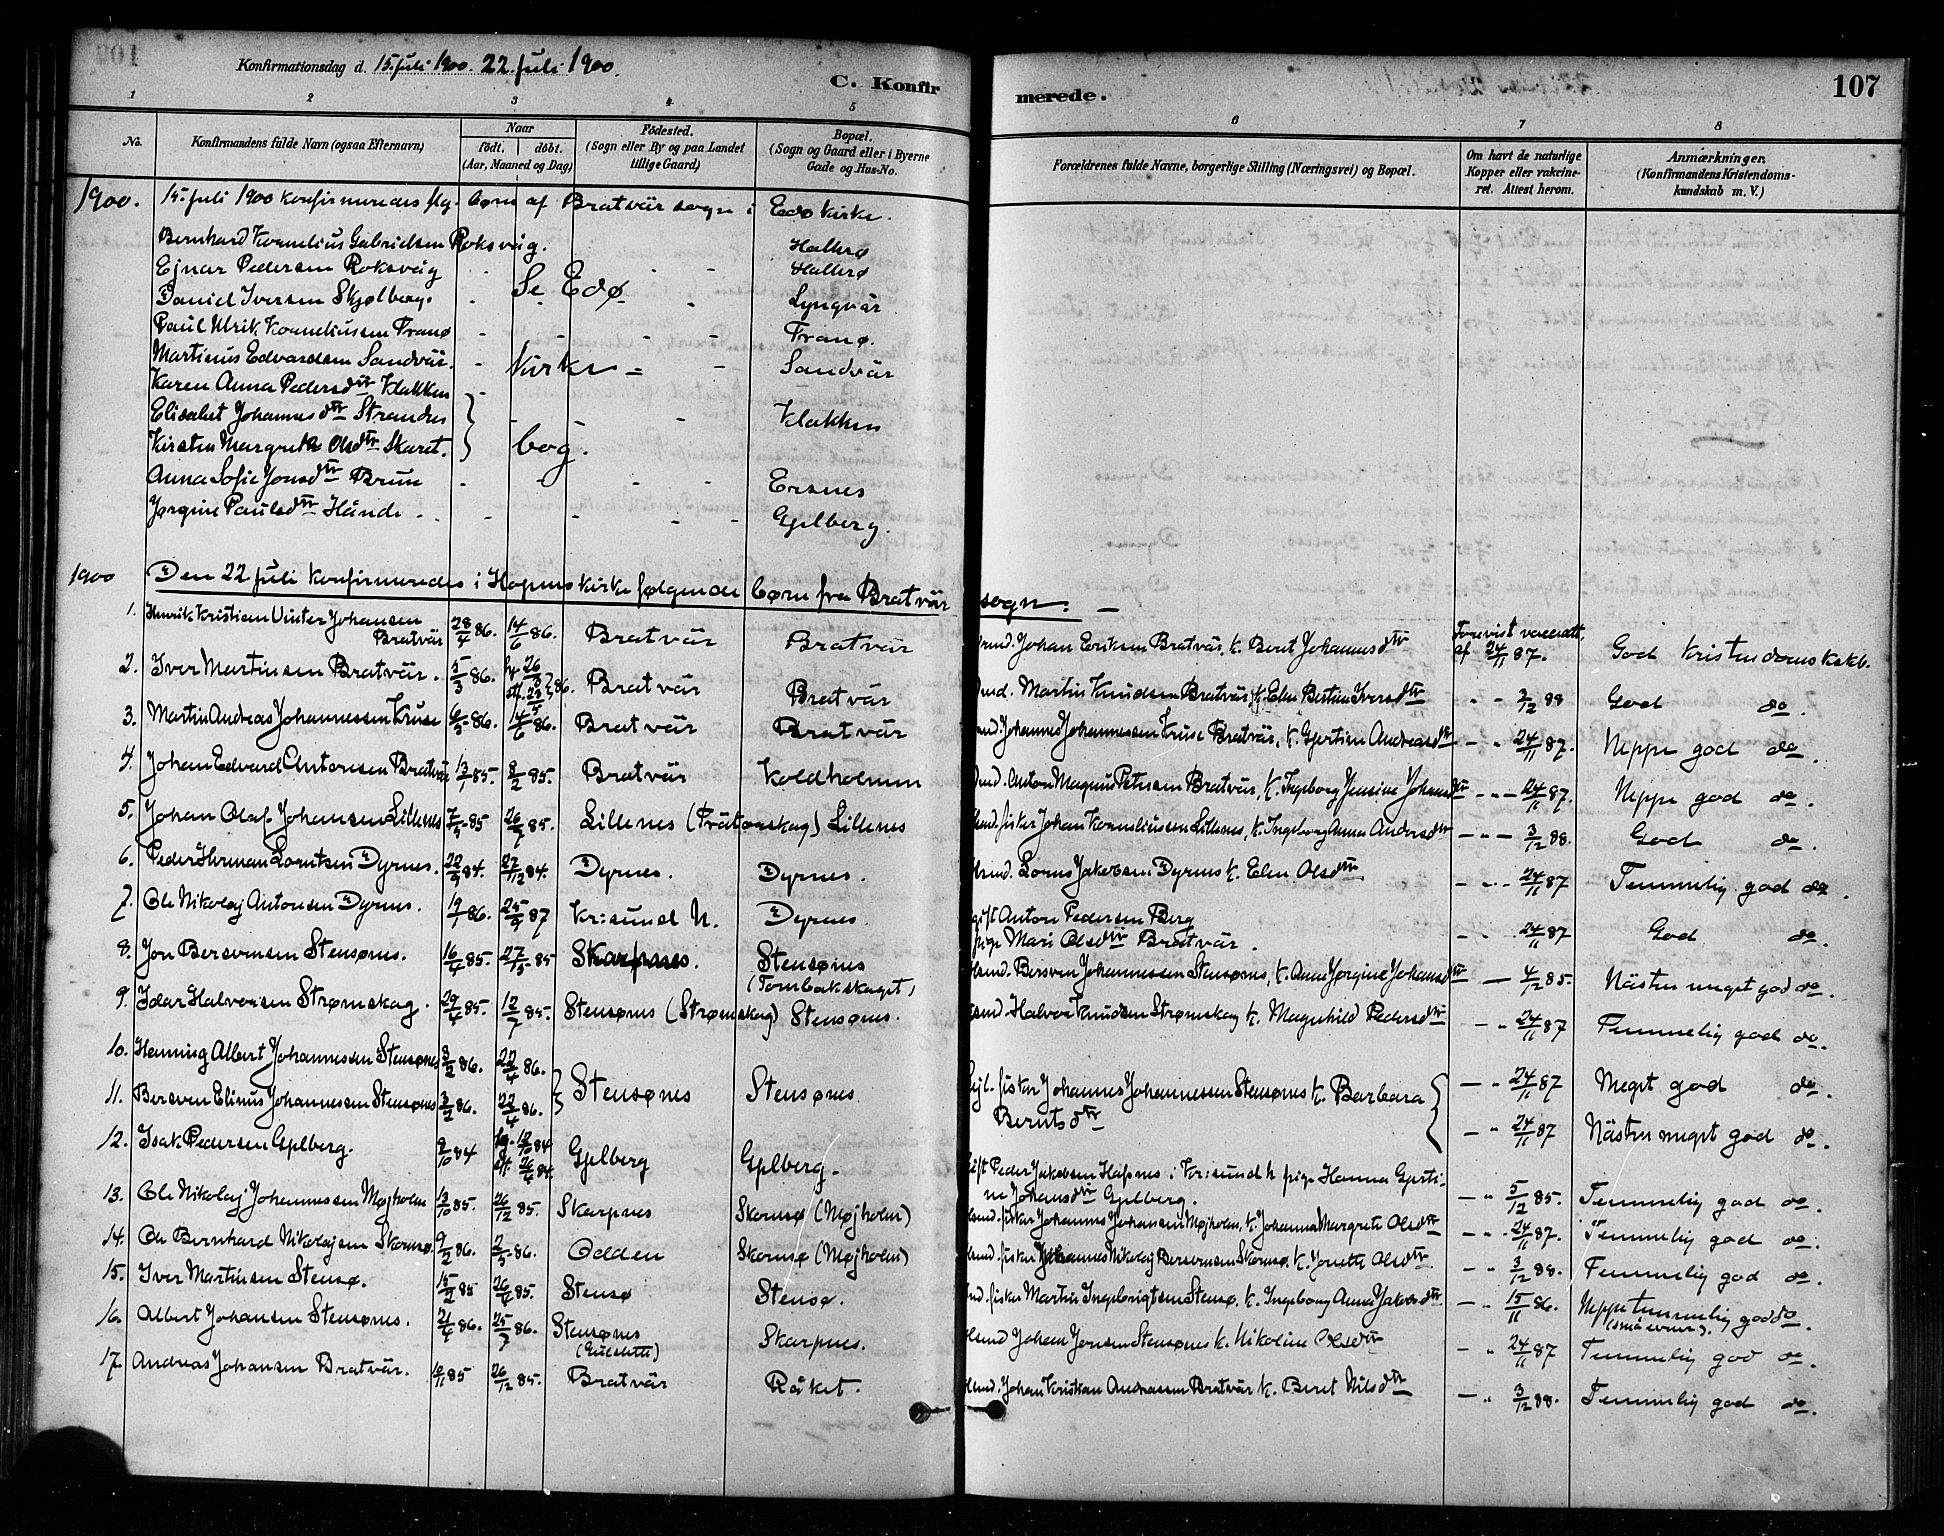 Konfirmationsdag d. 15. juli 1900. 22. juli 1900.
C. Konfirmerede.
107
1 2 3 4 5 6 7 8
No.
Konfirmandens fulde Navn (ogsaa Efternavn)
Naar
födt. döbt.
(Aar, Maaned og Dag)
Födested.
(Sogn eller By og paa Landet
tillige Gaard)
Bopæl.
(Sogn og Gaard eller i Byerne
Gade og Hus-No.
Forældrenes fulde Navne, borgerlige Stilling (Næringsvei) og Bopæl.
Om havt de naturlige
Kopper eller vakcine-
ret. Attest herom.
Anmærkninger,
(Konfirmandens Kristendoms-
kundskab m. V.)
1900. 15. juli 1900 konfirmeredes flg. børn af Bratvär sogn i Edø kirke.
Bernhard Kornelius Gabrielsen Roksvåg. Hallerø
Ejnar Pedersen Roksvåg Hallerø
Daniel Iversen Skjølberg. Se Edø Lyngvär
Paul Ulrik Korneliussen Tranø Tranø.
Martinus Edvardsen Sandvär. Kirke Sandvär
Karen Anna Pedersdtr Klakken
Elisabet Johannesdtr Strandes Klakken
Kirsten Margrethe Olsdtr Skaret. bog.
Anna Sofie Jonsdtr Brun Ersnes
Jørgine Paulsdtr Hände Gjelberg.
1900 Den 22 juli konfirmeredes i Hopens kirke følgende børn fra Bratvär sogn. —
1. Henrik Kristian Vinter Johansen
Bratvär 28/4 86. 14/6 86. Bratvär Bratvär Gmd. Johan Eriksen Bratvär, k. Beret Johannesdtr Forevist vacc.att. af 24/11 87. God kristendomskskb.
2. Iver Martinsen Bratvär. 5/3 86. 26/3 86. Bratvär Bratvär Gmd. Martin Knudsen Bratvär, k. Elen Bertine Iversdtr " " 3/12 88 God do.
3. Martin Andreas Johannessen Kruse 6/5 86. 14/6 86. Bratvär Bratvär Johannes Johannessen Kruse Bratvär, k. Gjertine Andreasdtr — " 24/11 87. Neppe god do.
4. Johan Edvard Antonsen Bratvär 13/1 85. 8/2 85. Bratvär Koldholmen Anton Magnus Petersen Bratvär, k. Ingeborg Jensine Johansdtr — " — 24/11 87. Neppe god do.
5. Johan Olaf Johansen Lillenes 7/5 85 26/7 85. Lillenes (Trätorskag) Lillenes fisker Johan Korneliussen Lillenes, k. Ingeborg Anna Andersdtr — " — 3/12 88. God do.
6. Peder Herman Lorntsen Dyrnes. 22/9 84. 27/12 84. Dyrnes. Dyrnes. Lorns Jakobsen Dyrnes k. Elen Olsdtr — " — 24/11 87 Temmelig god do.
7. Ole Nikolaj Antonsen Dyrnes. 19/1 86. 25/9 87 Kr:sund N. Dyrnes. gift Anton Pedersen Berg
pige Mari Olsdtr Bratvär. — " 24/11 87 God do.
8. Jon Bersvensen Stensønes. 16/4 85. 27/5 85 Skarpnes. Stensønes
(Tombakskaget) Bersven Johannessen Stensønes, k. Anna Jørgine Johansdtr — 4/12 85. Nästen meget god do.
9. Idar Halvorsen Strømskag. 29/4 85. 12/7 85. Stensønes (Strømskag) Stensønes. Halvor Knudsen Strømskag k. Magnhild Pedersdtr — " 24/11 87 Temmelig god do.
10. Henning Albert Johannessen Stensønes 3/2 86. 22/4 86. Stensønes Stensønes. fisker Johannes Johannessen Stensønes k. Barbara — " 24/11 87 Meget god do.
11. Bersven Elinus Johannessen Stensønes 3/2 86. 22/4 86. Berntsdtr — " 24/11 87 Nästen meget god do.
12. Isak Pedersen Gjelberg. 8/10 84 hj. 12/10 84 Gjelberg Gjelberg. gift Peder Jakobsen Hafsnes i Kr:sund & pige Hanna Gjerti-
ne Johansdtr Gjelberg. — " 5/12 85. Temmelig god do.
13. Ole Nikolaj Johannessen Mojholm 13/10 85. 26/12 85. Skarpnes Skorsø (Møjholm) fisker Johannes Johansen Møjholm, k. Johanna Margrete Olsdtr — " 24/11 87. Temmelig god do.
14. Ole Bernhard Nikolajsen Skorsø. 9/2 86. 2/5 86. Odden Skorsø (Møjholm) fisker Johannes Nikolaj Bersvensen Skorsø. k. Jonette Olsdtr — " 3/12 88. Temmelig god do.
15. Iver Martinsen Stensø. 15/2 85 26/4 85. Stensø Stensø. fisker Martin Ingebrigtsen Stensø. k. Ingeborg Anna Jakobsdtr — " 15/11 86. Neppe temmelig god do
(små evner).
16. Albert Johansen Stensønes. 21/4 86. 25/7 86. Stensønes Skarpnes. Johan Jonsen Stensønes k. Nikoline Olsdtr — " 24/11 87 Temmelig god do.
17. Andreas Johansen Bratvär. 10/11 85 26/12 85. Bratvär Råket. Johan Kristian Andreassen Bratvär k. Beret Nilsdtr — " 3/12 88. Temmelig god do.